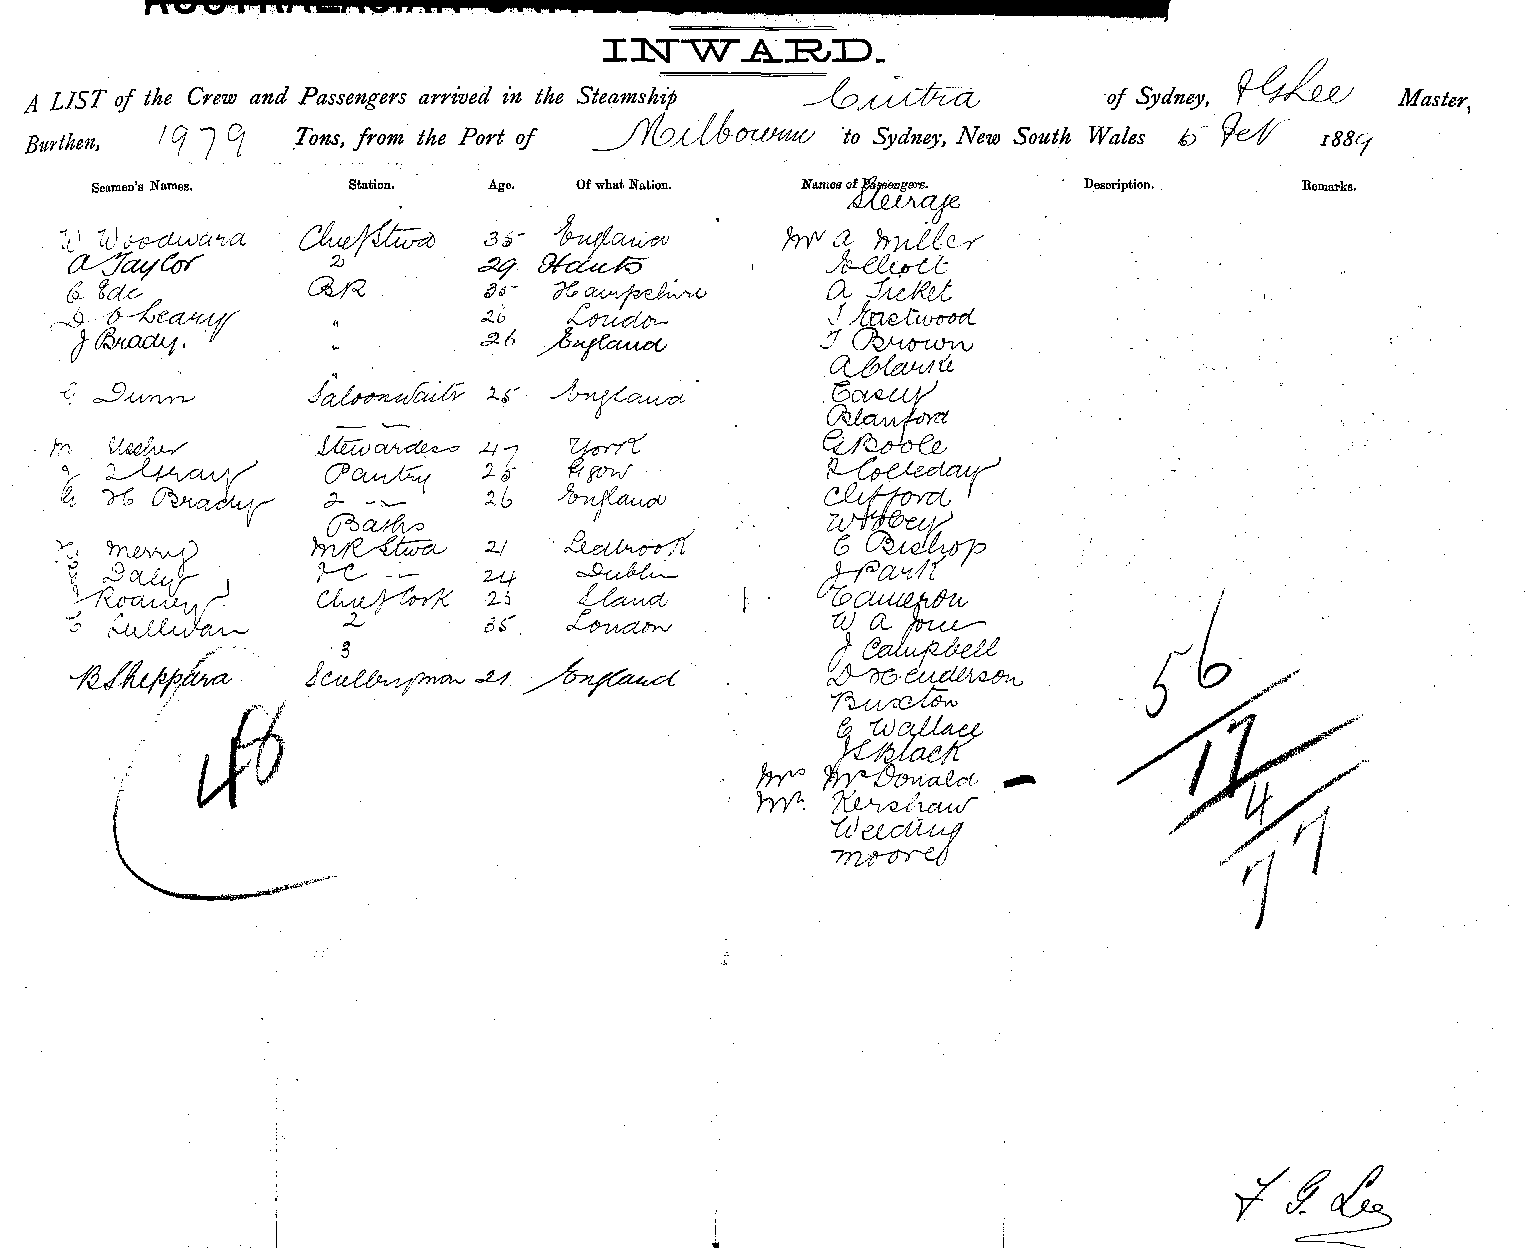 INWARD.
A LIST of the Crew and Passengers arrived in the Steamship Cintra of Sydney, F G Lee Master,
Burthen, 1979 Tons, from the Port of Melbourne to Sydney, New South Wales 5 Feb 1889
Seamen's Names. Station. Age. Of what Nation. Names of Passengers. Description. Remarks.
Steerage
W Woodward Chief Stwd 35 England Mr A Miller
A Taylor 2 29 Hants Elliott
C Ede BR 35 Hampshire A Ticket
D O Leary " 26 London T Eastwood
J Brady. " 26 England T Brown
A Clarke
G Dunn Saloonwaitr 25 England Casey
Blanford
M Uscher Stewardess 47 York G Boole
J Gray Pantry 25 Ggow Colleday
G H Brady 2 26 England Clifford
Baths W
H Merry MR Stwd 21 Ledbrook C Bishop
Daly FC 24 Dublin J Park
J Roaney Chief Cook 25 Iland Cameron
C Sullivan 2 35 London W A Jone
3 J Campbell
B Sheppard Sculleryman 21 England D Henderson
Buxton
G Wallace
J S Black
Mrs McDonald
Mr. Kershaw
Weeding
Moore
46
56
17
4
77
F G. Lee